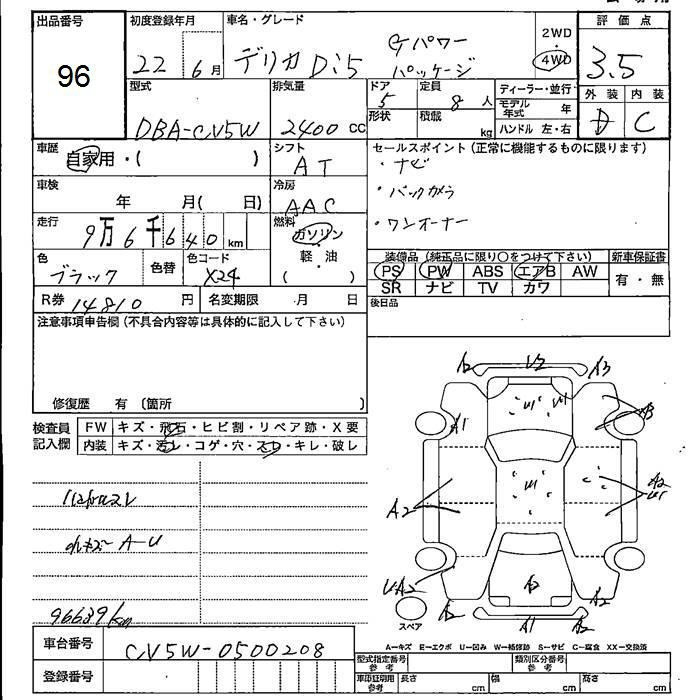 出品番号
96
初度登録年月
22年 6月
車名・グレード
デリカ D:5 Gパワーパッケージ
2WD
4WD
評価点
3.5
外装 内装
D C
型式
DBA-CV5W
排気量
2400 CC
ドア
5
形状
定員
8人
積載
kg
ディーラー・並行
モデル年式 年
ハンドル 左・右
車歴
自家用・( )
シフト
AT
セールスポイント(正常に機能するものに限ります)
・ナビ
・バックカメラ
・ワンオーナー
車検
年 月( 日)
冷房
AAC
走行
9万6千640km
燃料
ガソリン・軽・油
( )
色
ブラック
色替
色コード
X24
装備品(純正品に限り○をつけて下さい)
新車保証書
PS PW ABS エアB AW
SR ナビ TV カワ
有・無
R券 14810円
名変期限 月 日
後日品
注意事項申告欄(不具合内容等は具体的に記入して下さい)
修復歴 有(箇所 )
検査員記入欄
FW キズ・飛石・ヒビ割・リペア跡・X要
内装 キズ・汚レ・コゲ・穴・スレ・キレ・破レ
A-U
96639km
A2 V2 A3
A1
A2
A2
U・A2
A2
A2 A1 A2 A2
スペア
A-キズ E-エクボ U-凹み W-補修跡 S-サビ C-腐食 XX-交換済
車台番号
CV5W-0500208
登録番号
型式指定番号 参考
類別区分番号 参考
車庫証明用 参考
長さ cm
幅 cm
高さ cm